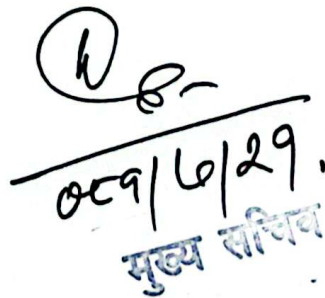 ०८१/७/२१.
मुख्य सचिव